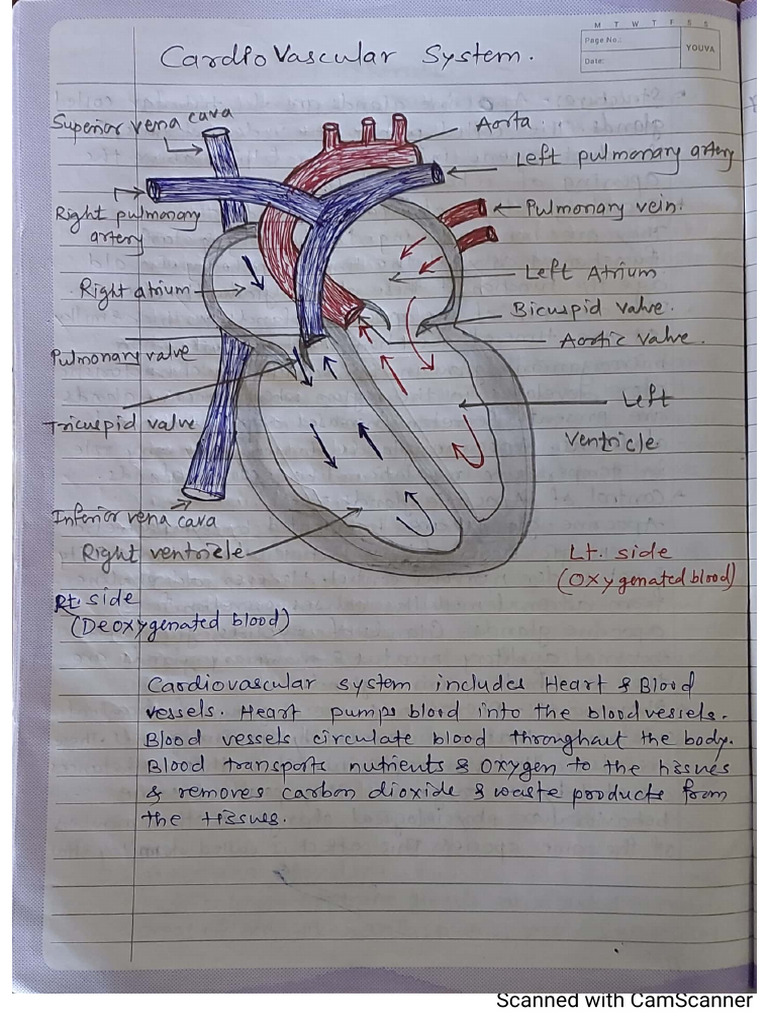 M T W T F S S
Page No.:
Date:
YOUVA
Cardio Vascular System.
Superior vena cava
Aorta
Left pulmonary artery
Right pulmonary
artery
Pulmonary vein.
Left Atrium
Right atrium
Bicuspid valve.
Aortic valve.
Pulmonary valve
Left
Ventricle
Tricuspid valve
Inferior vena cava
Right ventricle
Lt. side
(Oxygenated blood)
Rt. side
(Deoxygenated blood)
Cardiovascular system includes Heart & Blood
vessels. Heart pumps blood into the blood vessels.
Blood vessels circulate blood throughout the body.
Blood transports nutrients & oxygen to the tissues
& removes carbon dioxide & waste products from
the tissues.
Scanned with CamScanner